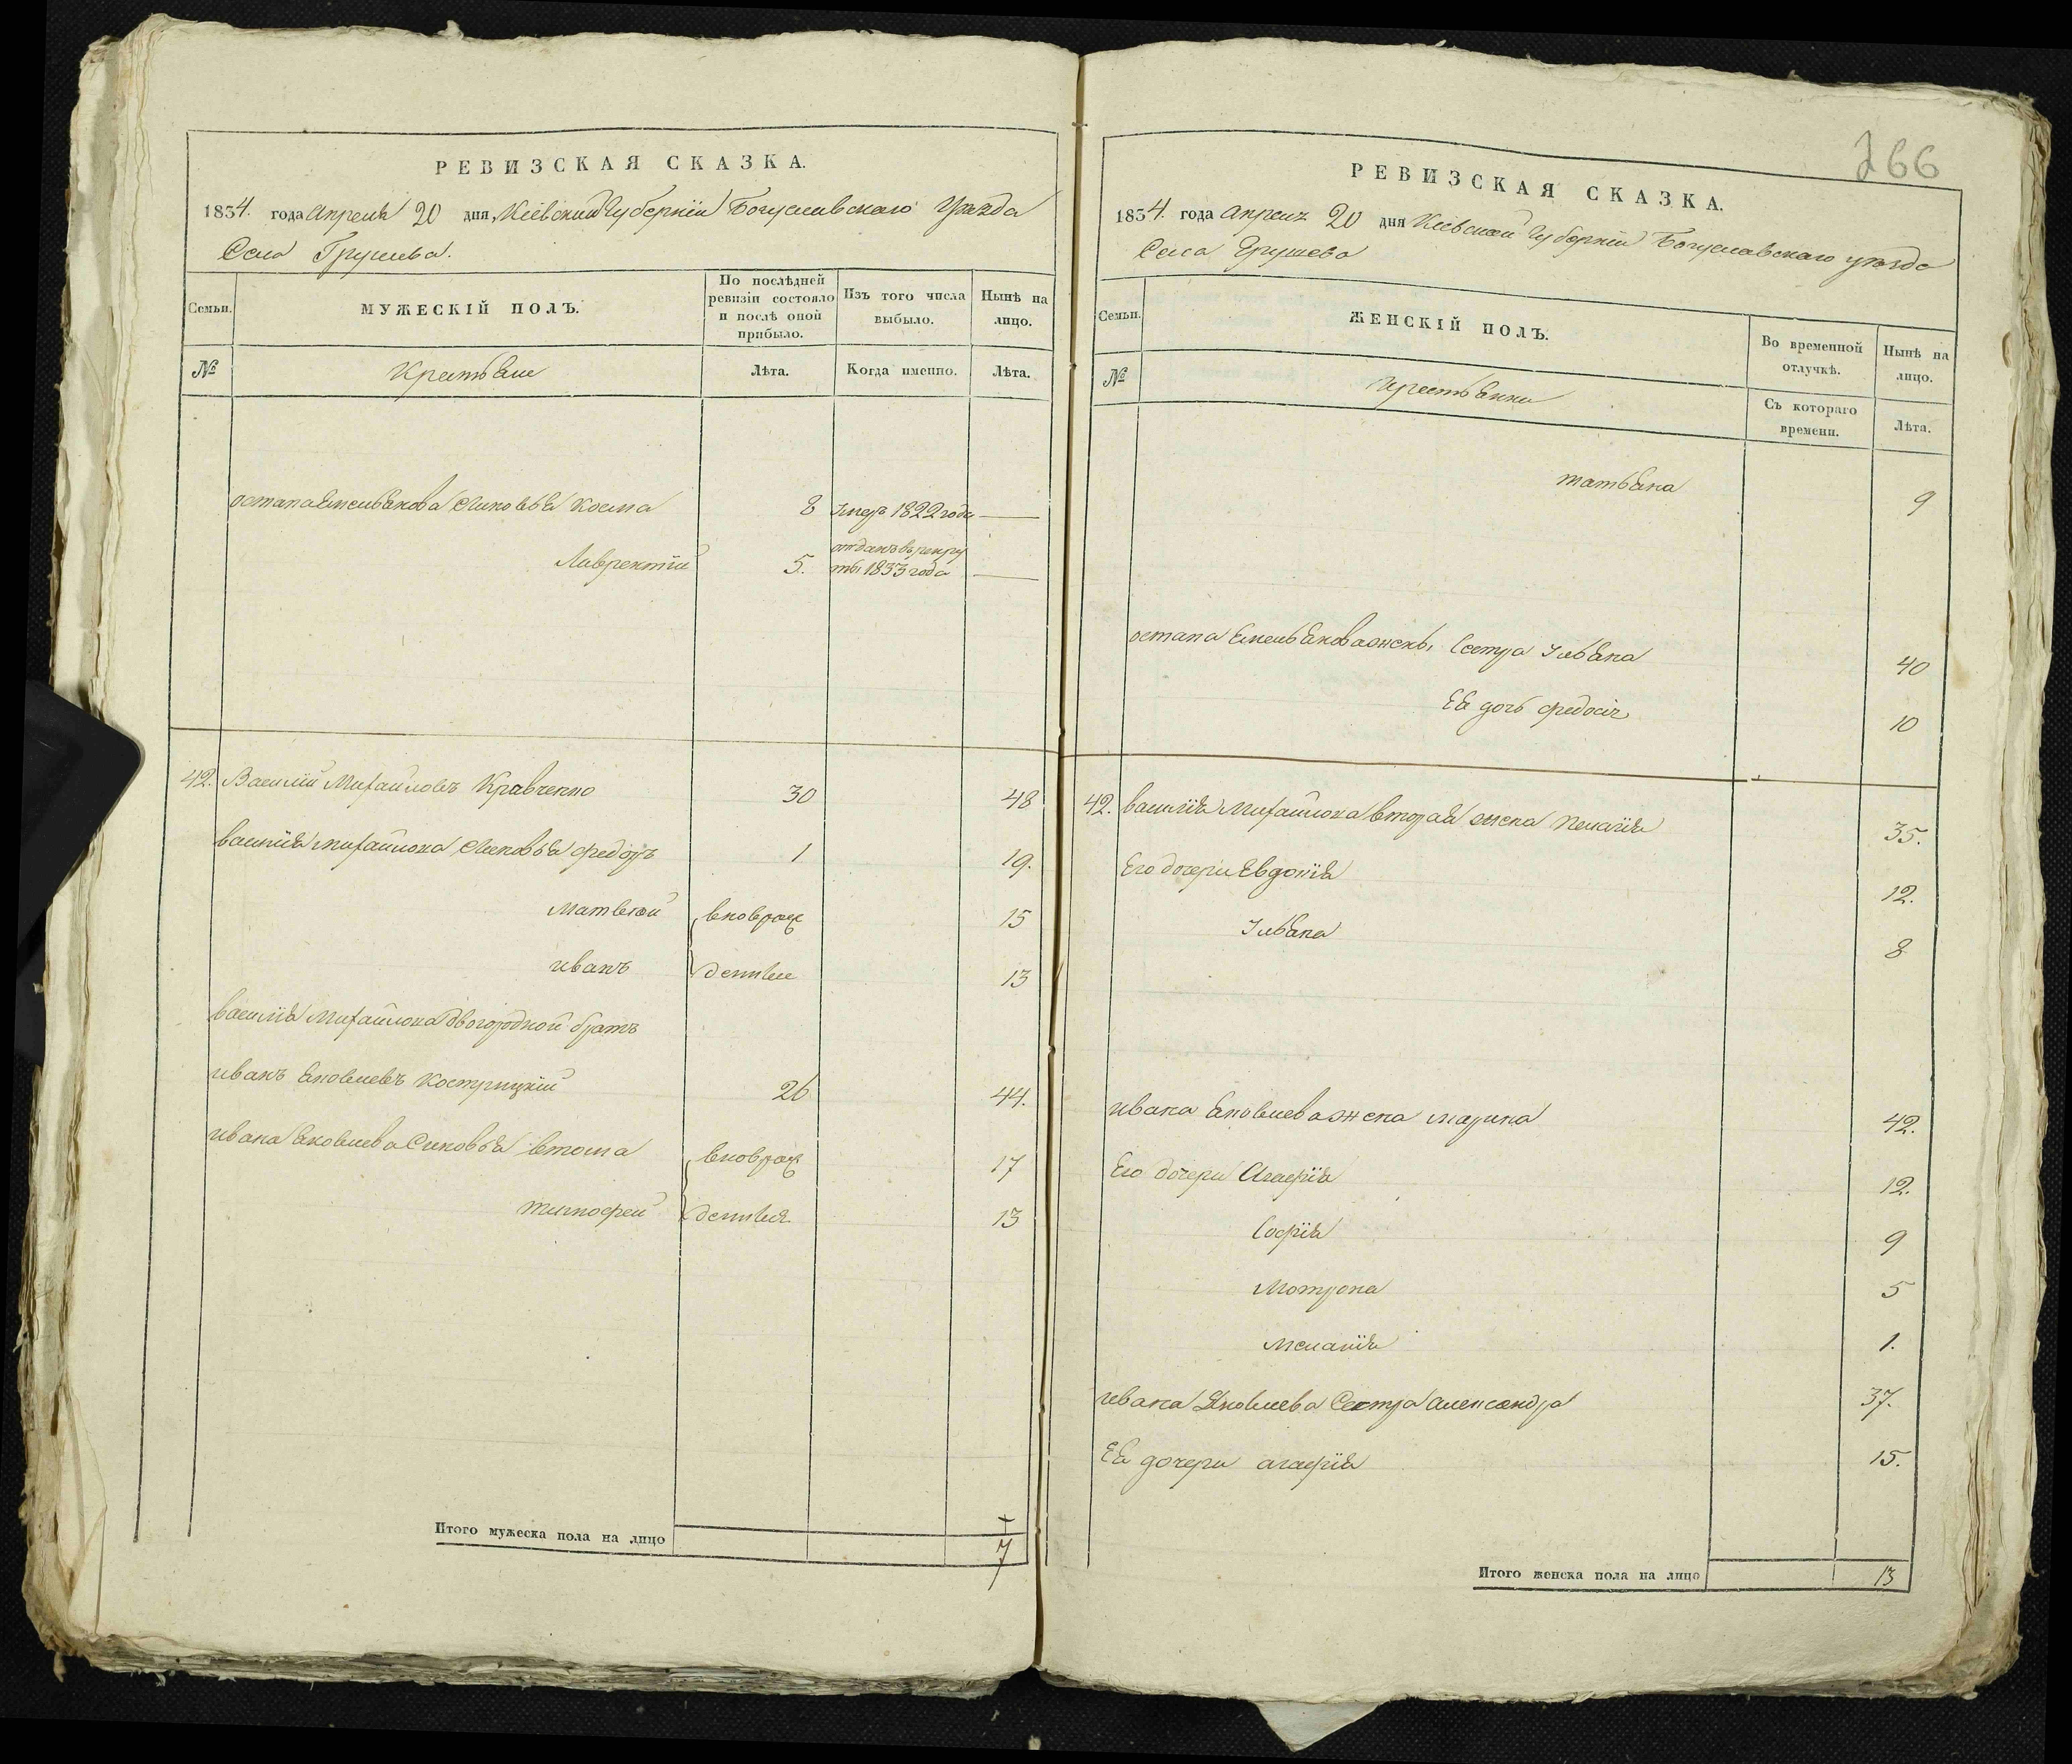 РЕВИЗСКАЯ СКАЗКА.
1834. года Апреля 20 дня, Кіевской Губерніи Богуславскаго Уѣзда
Села Грушева.
Семьи.
МУЖЕСКІЙ ПОЛЪ.
По послѣдней ревизіи состояло и послѣ оной прибыло.
Изъ того числа выбыло.
Нынѣ на лицо.
№
Крестьяне
Лѣта.
Когда именно.
Лѣта.
остапа Емельянова Сыновья Косма 8 Умеръ 1822 года
отданъ въ рекру
Лаврентій 5. ты 1833 года
42. Василій Михайловъ Кравченко 30 48
василія михайлова Сыновья федоръ 1 19.
матвей вноврож 15
иванъ денные 13
василія Михайлова двогородной братъ
иванъ Яковлевъ Кострицкій 26 44.
ивана Яковлева Сыновья 17 вноврож
тимофей денныя 13
Итого мужеска пола на лицо 7
266
РЕВИЗСКАЯ СКАЗКА.
1834. года апреля 20 дня Кіевской Губерніи Богуславскаго уѣзда
Села Грушева
Семьи.
ЖЕНСКІЙ ПОЛЪ.
Во временной отлучкѣ.
Нынѣ на лицо.
№
Крестьянки
Съ котораго времени.
Лѣта.
татьяна 9
остапа Емельянова жены Сестра Ульяна 40
Ея дочь федосія 10
42. василія Михайлова вторая жена Пелагія 35.
Его дочери Евдокія 12.
Ульяна 8
ивана Яковлева жена марина 42.
Его дочери Агафія 12.
Софія 9
Мотрона 5
меланія 1.
ивана Яковлева Сестра Александра 37.
Ея дочери агафія 15.
Итого женска пола на лицо 13